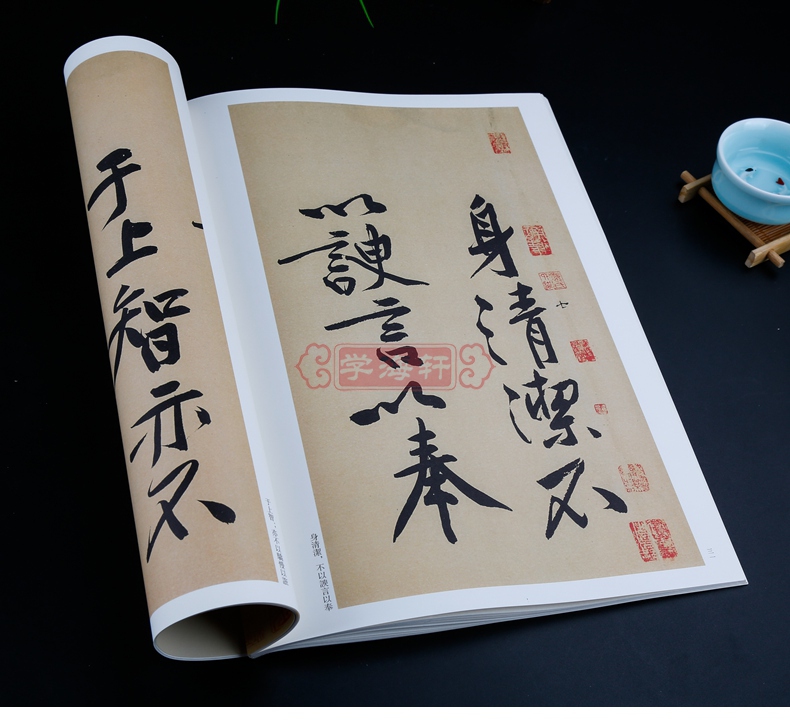 身清潔不
以諛言以奉
七
身清潔、不以諛言以奉
三
于上智亦不
于上智、亦不以
学海轩